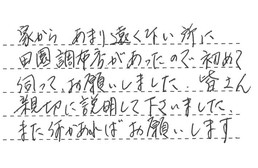 家から あまり遠くない所に
田園調布店があったので初めて
伺って、お願いしました. 皆さん
親切に説明して下さいました.
また何かあればお願いします